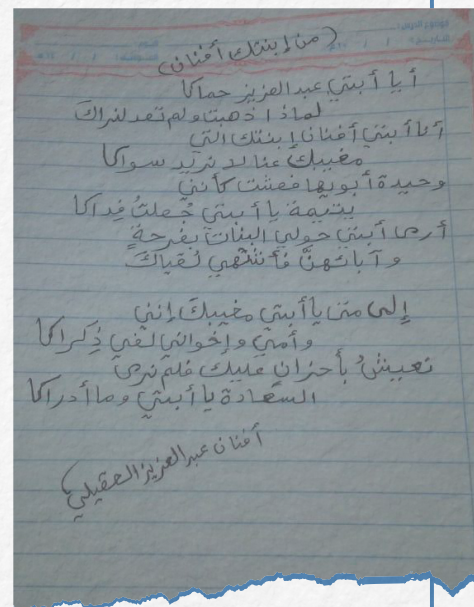 (من ابنتك أفنان)
أيا أبتي عبدالعزيز حماكا
لماذا ذهبت ولم تعد لنراك
أنا أبتي أفنان ابنتك التي
مغيبك عنا لا نريد سواكا
وحيدة أبويها فعشت كأنني
يتيمة يا أبتي جُعلتُ فداكا
أرى أبتي حولي البنات بفرحةٍ
وآبائهنَّ فأشتهي لُقياكَ
إلى متى يا أبتي مغيبكَ إنني
وأمي وإخواني لفي ذِكراكا
نعيشُ بأحزانٍ عليك فلم نرى
السعادة يا أبتي وما أدراكا
أفنان عبدالعزيز العقيلي